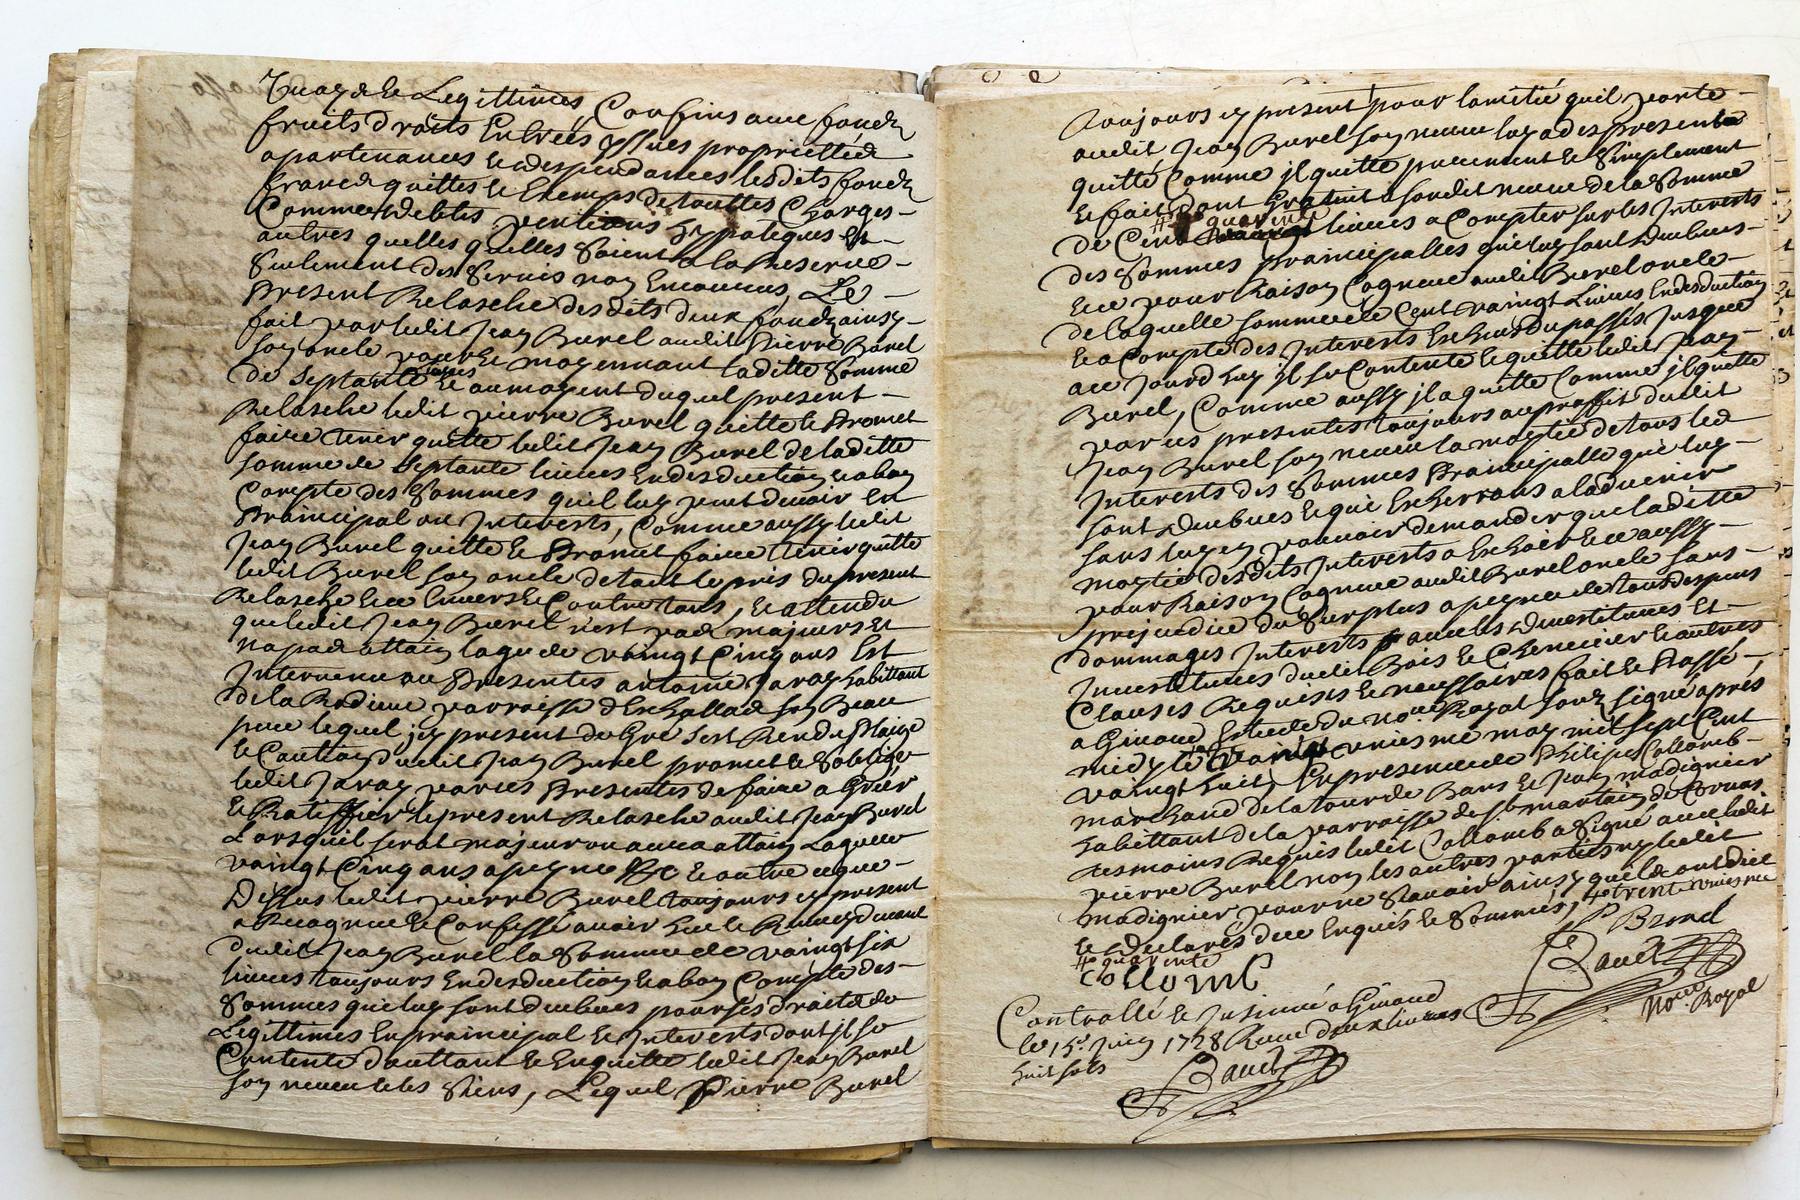 et Legittimes, Confins avec fondz
fruits droits Entrées yssues proprietted
apartenances et despendances lesdits fondz
francs quittes et Exemps de touttes Charges
Comme debtes ventions hypoteques et
autres quelles quelles Soient a la Reserve
Seulement des Servis non Encourus, Le
present Relasche des dits deux fondz ainsy
fait par ledit Jean Burel audit Pierre Burel
son oncle pour et moyennant laditte Somme
de Septante livres et au moyent duquel present
Relasche ledit pierre Burel quitte et Promet
faire tenir quitte ledit Jean Burel de laditte
somme de Septante livres En desduction et abon
Compte des Sommes quil luy peut devoir En
Prainsipal ou Interets, Comme aussy ledit
Jean Burel quitte et Promet faire tenir quitte
ledit Burel son oncle de tout le pris du present
Relasche Et ce Envers et Contre tous, et attendu
que ledit Jean Burel n'est pad majeurs et
na pad attain lage de vaingt Cinq ans Est
Intervenu au Presentes antoine Jaray habittant
de la parroisse son Beau
pere lequel icy present de Gré sest Rendu Plaige
et Caution dudit Jean Burel promet et Soblige
ledit Jaray par ces Presentes de faire a Gréér
et Ratiffier le present Relasche audit Jean Burel
Lorsquil serat majeur ou aura attain Lage de
vaingt Cinq ans a peyne &c et outre ce que
Dessus ledit pierre Burel toujours icy present
a Recognue et Confessé avoir heu et Receu
dudit Jean Burel la Somme de vaingt six
livres toujours En desduction et abon Compte des
Sommes que luy sont deubues pour ses droits de
Legittimes En prainsipal et Interets dont il se
Contente d'auttant et En quitte ledit Jean Burel
son neveu et les Siens, Lequel Pierre Burel
Toujours icy present pour lamitié quil porte
audit Jean Burel son neveu luy a des presente
quitté Comme il quitte purement et Simplement
Et fait dont Gratuit a son dit neveu de la Somme
de Cent quarente livres a Compter sur les Interets
des Sommes Prainsipalles que luy sont deubues
Ecce pour Raison Cogneue audit Burel oncle
de laquelle somme de Cent vaingt Livres En desduction
et a Compte des Interets Escheus du passés Jusque
a ce Jourd huy il se Contente et quitte ledit Jean
Burel, Comme aussy il a quitté Comme il quitte
par ces presentes toujours au proffit dudit
Jean Burel son neveu la moytié de tous led
Interets des Sommes Prainsipalle que luy
sont deubues et qui Escherront a ladvenir
sans luy en pouvoir demander que laditte
moytié desdits Interets a Eschoir Et ce aussy
pour Raison Cogneue audit Burel oncle sans
prejudice du Surplus a peyne de tous despens
dommages Interets avec les devestitures Et
Investitures dudit Bois et autres
Clauses Requises et necessaires fait et Passé
a Giraud Estude du nore Royal souz signé apres
midy le may mil sept Cent
vaingt huit, En presence de Philipes Collomb
marchand de la tour de Bans et Jean madignier
habittant de la parroisse de St martain de Cornas
tesmoins Requis ledit Collomb a Signé avec ledit
pierre Burel non les autres parties ny ledit
madignier pour ne Scavoir ainsy quils ont dict
et declarés dece Enquis et Sommés, trente
quarente
P Burel
Collomb
Nore Royal
Controllé et Insinué a Giraud
le 15e Juin 1728 Receu deux livres
huit sols